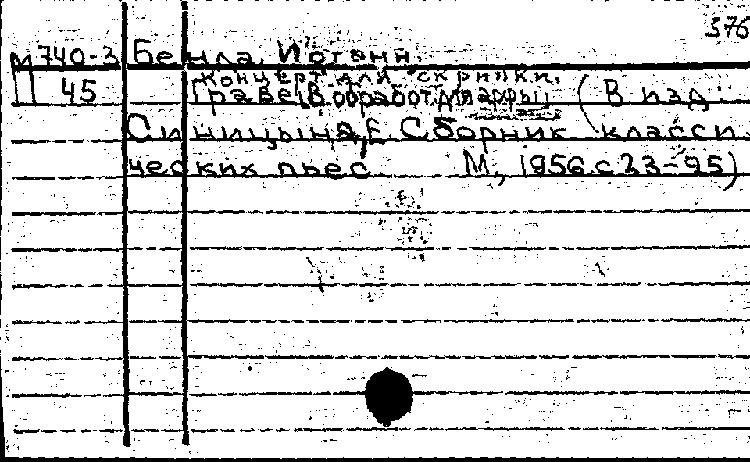 576
М 740-3 Бенда, Иоганн.
Концерт для скрипки.
45 Граве (В обработ. для арфы) (В изд.:
Синицына, Е. Сборник класси
ческих пьес М., 1956. с 23-95)